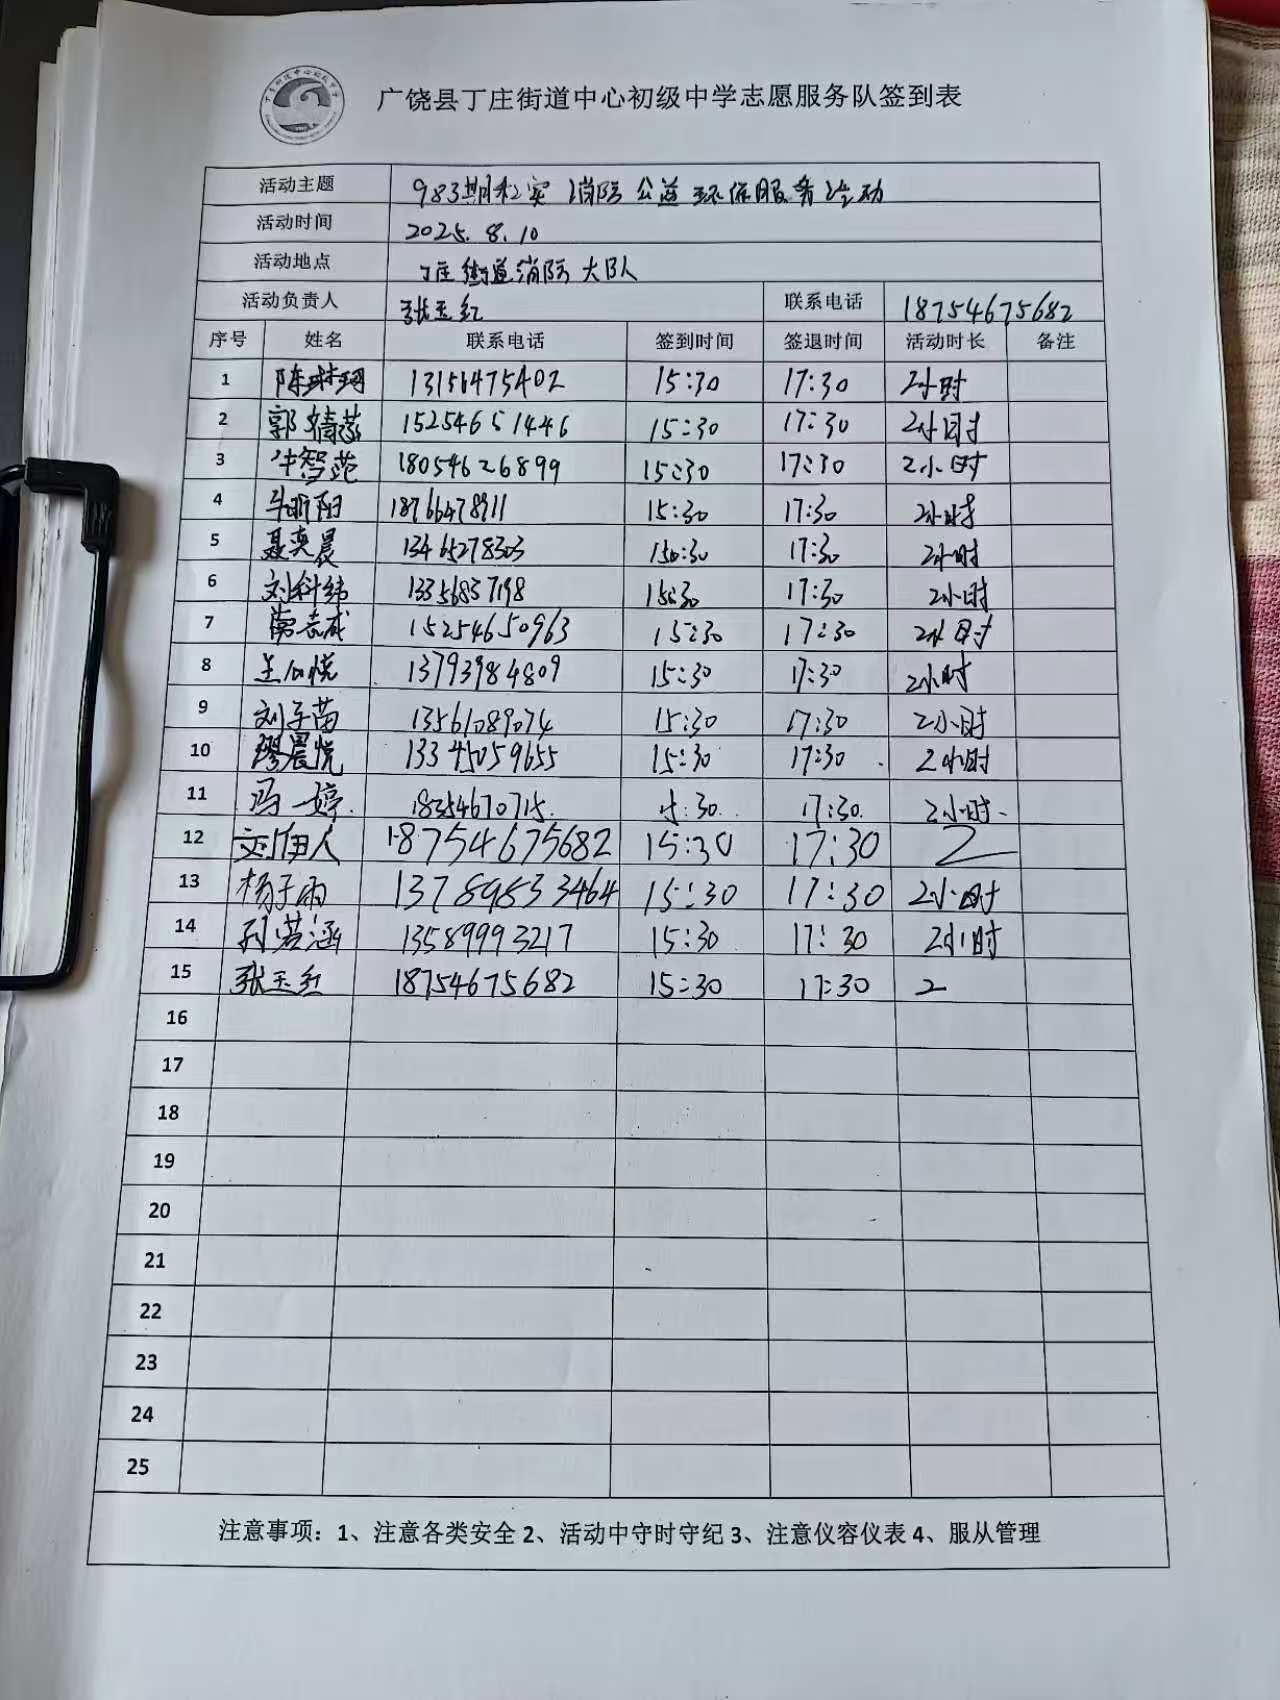 广饶县丁庄街道中心初级中学志愿服务队签到表
活动主题 983期红实 消防公益环保服务活动
活动时间 2025.8.10
活动地点 丁庄街道消防大队
活动负责人 张玉红 联系电话 18754675682
序号 姓名 联系电话 签到时间 签退时间 活动时长 备注
1 陈琳珂 13156475402 15:30 17:30 2小时
2 郭婧蕊 15254651446 15:30 17:30 2小时
3 牛智范 18054626899 15:30 17:30 2小时
4 牟昕阳 18766478911 15:30 17:30 2小时
5 聂奕晨 13465278303 150:30 17:30 2小时
6 刘科纬 13356837198 15:30 17:30 2小时
7 常志成 15254650963 15:30 17:30 2小时
8 13793984809 15:30 17:30 2小时
9 刘子苗 13561089074 15:30 17:30 2小时
10 缪晨悦 13345059655 15:30 17:30 2小时
11 冯一婷 18354670715 15:30 17:30 2小时
12 刘伊人 18754675682 15:30 17:30 2
13 杨子雨 13789853464 15:30 17:30 2小时
14 孙若涵 13589993217 15:30 17:30 2小时
15 张玉红 18754675682 15:30 17:30 2
16
17
18
19
20
21
22
23
24
25
注意事项：1、注意各类安全 2、活动中守时守纪 3、注意仪容仪表 4、服从管理